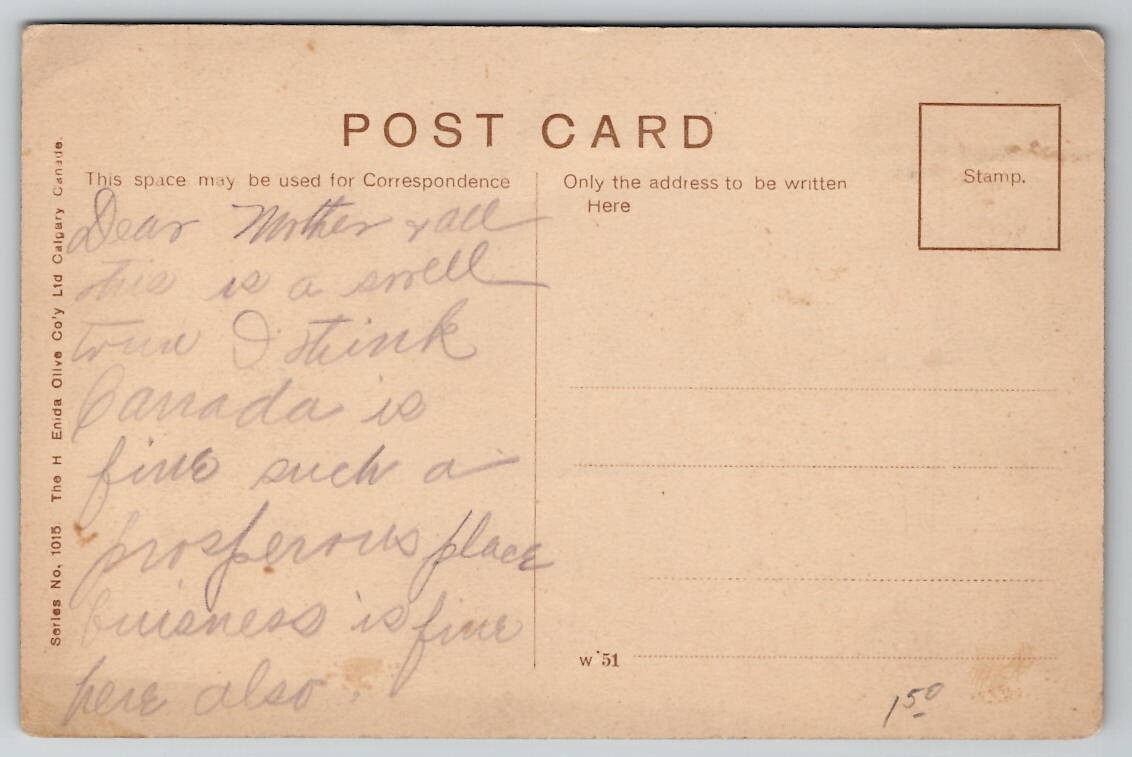 POST CARD
This space may be used for Correspondence
Only the address to be written
Here
Stamp.
Dear Mother & all
this is a swell
town I think
Canada is
fine such a
prosperous place
buisness is fine
here also.
Series No. 1015. The H Enida Olive Co'y Ltd Calgary Canada.
W 51
1 50